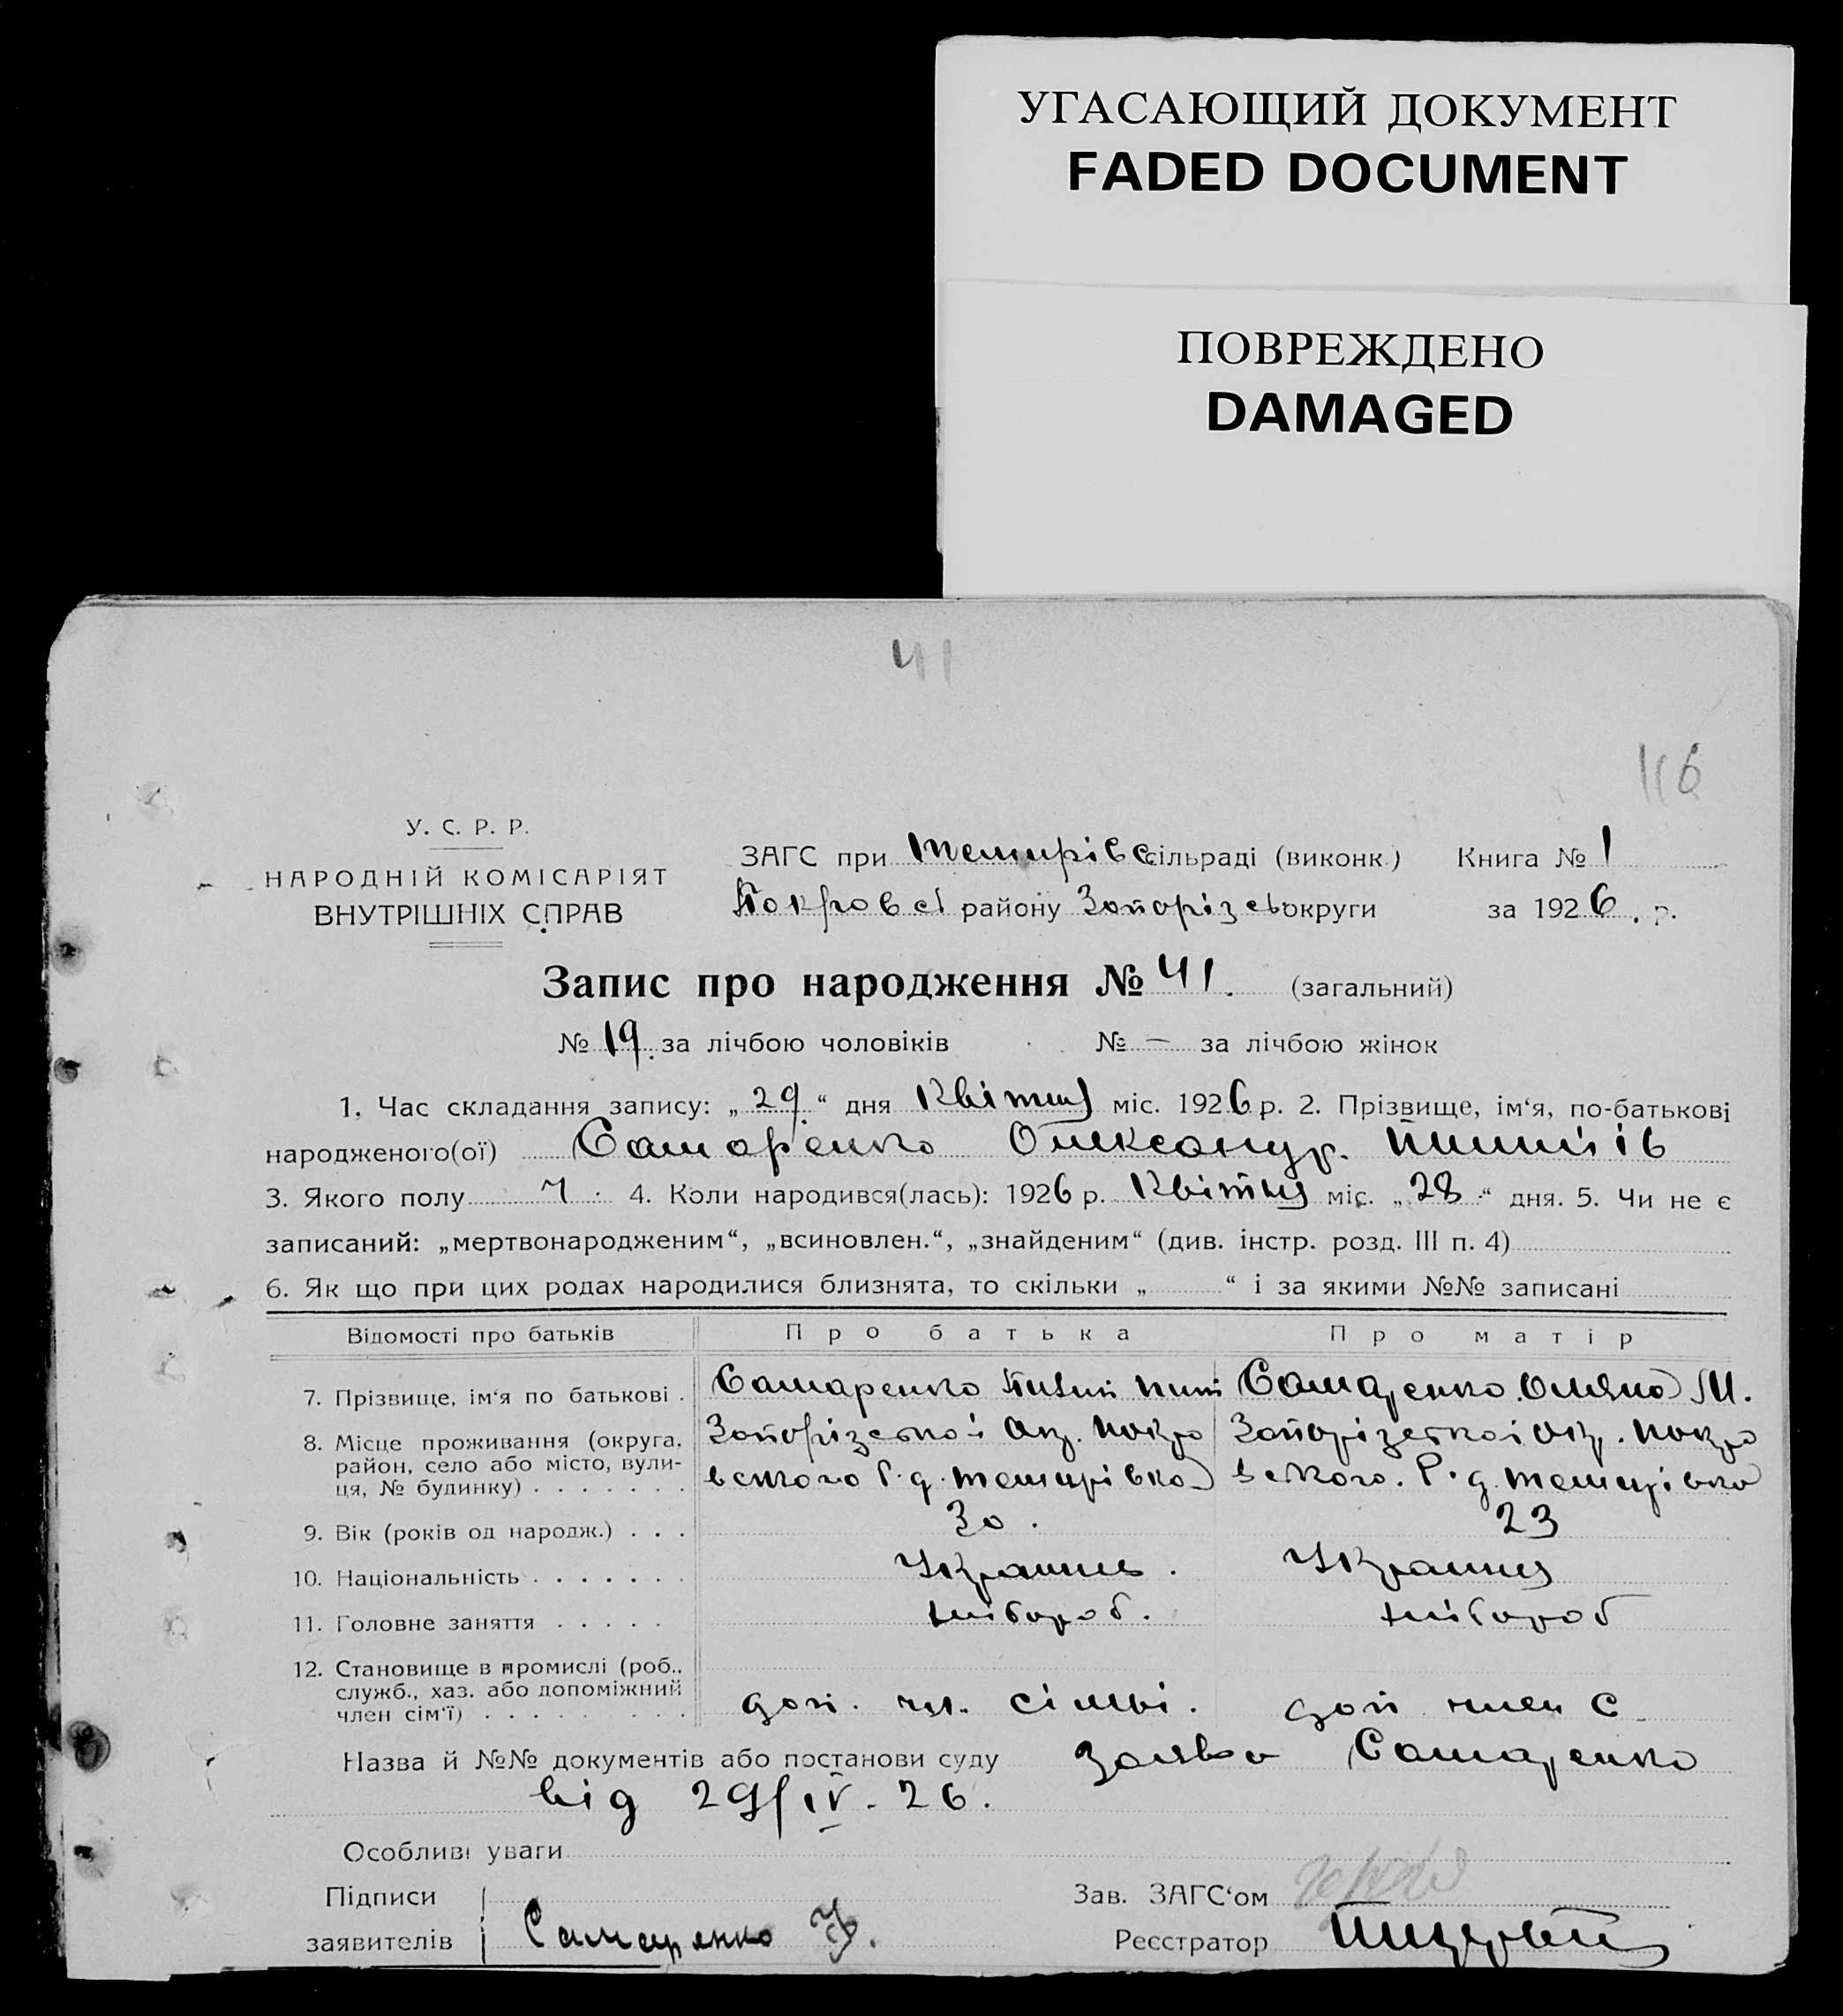 УГАСАЮЩИЙ ДОКУМЕНТ
FADED DOCUMENT
ПОВРЕЖДЕНО
DAMAGED
41
116
У. С. Р. Р.
НАРОДНІЙ КОМІСАРІЯТ
ВНУТРІШНІХ СПРАВ
ЗАГС при Темирівс сільраді (виконк.) Книга № 1
Покровсі району Запорізсь округи за 1926. р.
Запис про народження № 41. (загальний)
№ 19. за лічбою чоловіків № — за лічбою жінок
1. Час складання запису: „29.“ дня Квітня міс. 1926 р. 2. Прізвище, ім‘я, по-батькові
народженого(ої) Самаренко Олександр.
3. Якого полу ч. 4. Коли народився(лась): 1926 р. Квітня міс. „28“ дня. 5. Чи не є
записаний: „мертвонародженим“, „всиновлен.“, „знайденим“ (див. інстр. розд. III п. 4)
6. Як що при цих родах народилися близнята, то скільки „ “ і за якими №№ записані
Відомості про батьків Про батька Про матір
7. Прізвище, ім‘я по батькові . Самаренко Самаренко М.
8. Місце проживання (округа, район, село або місто, вулиця, № будинку) . . . . . . .
Запорізської Окр. Покро Запорізської Окр. Покро
вського Р. д. Темирівка вського. Р. д. Темирівка
9. Вік (років од народж.) . . . 30. 23
10. Національність . . . . . . . Украинць. Украинця
11. Головне заняття . . . . . хлібороб. хлібороб
12. Становище в промислі (роб., служб., хаз. або допоміжний член сім‘ї) . . . . . . . . .
доп. чл. сімьі. доп член с
Назва й №№ документів або постанови суду заява Самаренко
від 29/IV-26.
Особливі уваги
Підписи Зав. ЗАГС‘ом
заявителів Самаренко Реєстратор